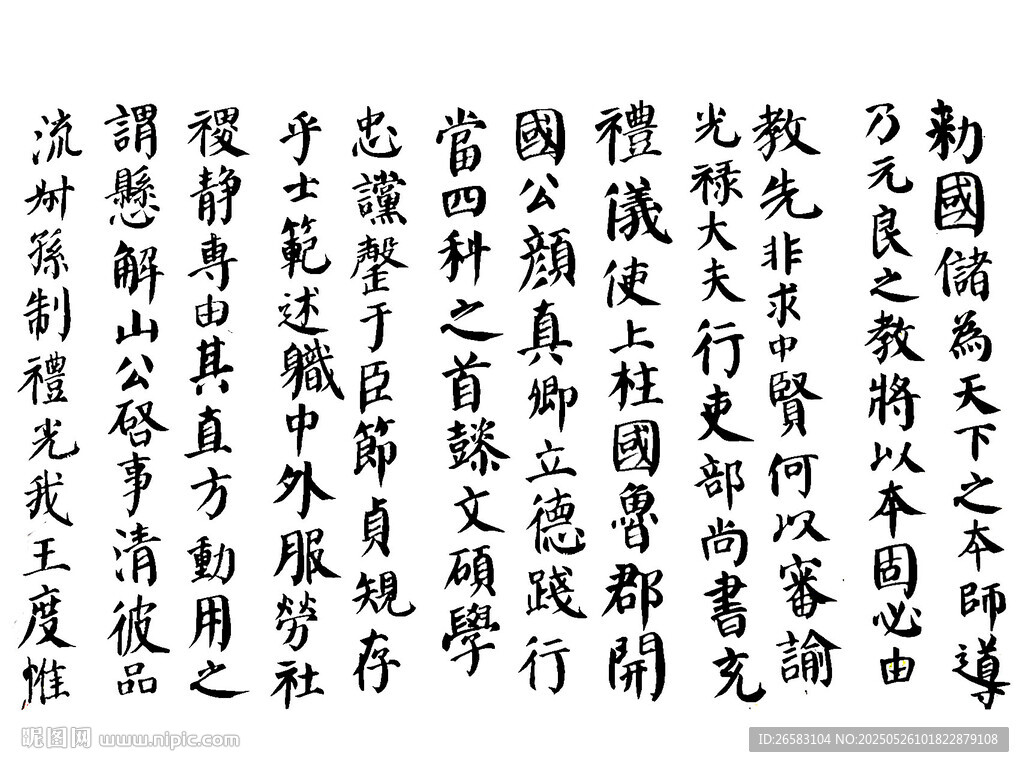 勑國儲為天下之本師導
乃元良之教將以本固必由
教先非求中賢何以審諭
光禄大夫行吏部尚書充
禮儀使上柱國魯郡開
國公顔真卿立德踐行
當四科之首懿文碩學
忠讜罄于臣節貞規存
乎士範述職中外服勞社
稷静專由其直方動用之
謂懸解山公啓事清彼品
流叔孫制禮光我王度惟
昵图网 www.nipic.com
ID:26583104 NO:20250526101822879108